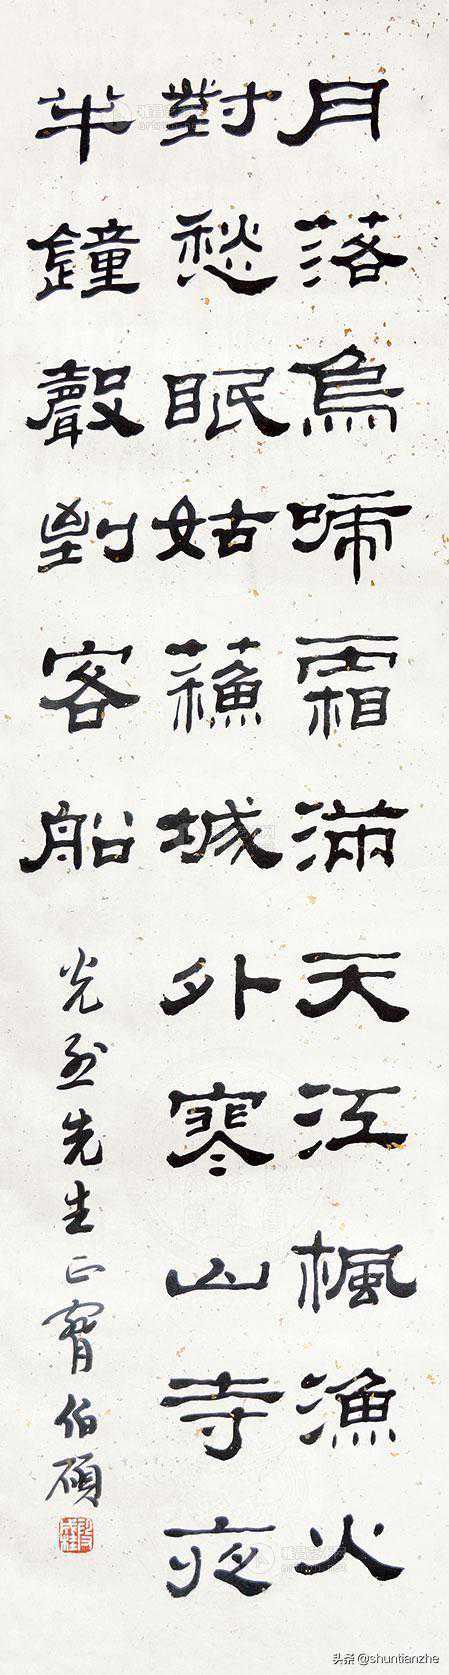 月落烏啼霜滿天江楓漁火
對愁眠姑蘓城外寒山寺夜
半鐘聲到客船
光烈先生正 伯碩
头条 @shuntianzhe